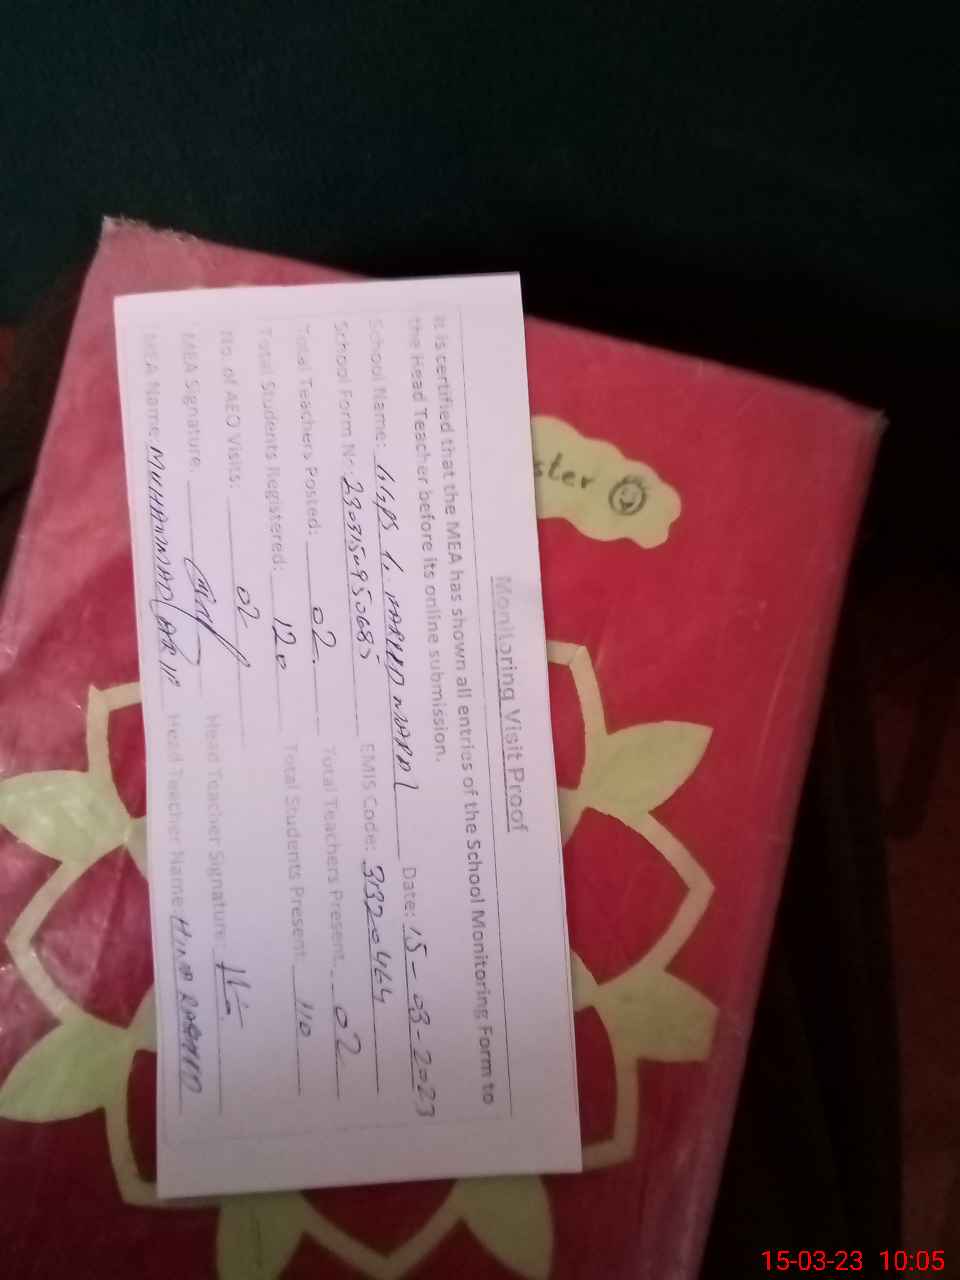 Monitoring Visit Proof
It is certified that the MEA has shown all entries of the School Monitoring Form to
the Head Teacher before its online submission.
School Name: GGPS Date: 15-03-2023
School Form No: 2303150950685 EMIS Code: 31320464
Total Teachers Posted: 02 Total Teachers Present: 02
Total Students Registered: 120 Total Students Present: 110
No. of AEO Visits: 02
MEA Signature: Head Teacher Signature:
MEA Name: MUHAMMAD Head Teacher Name:
ster
15-03-23 10:05